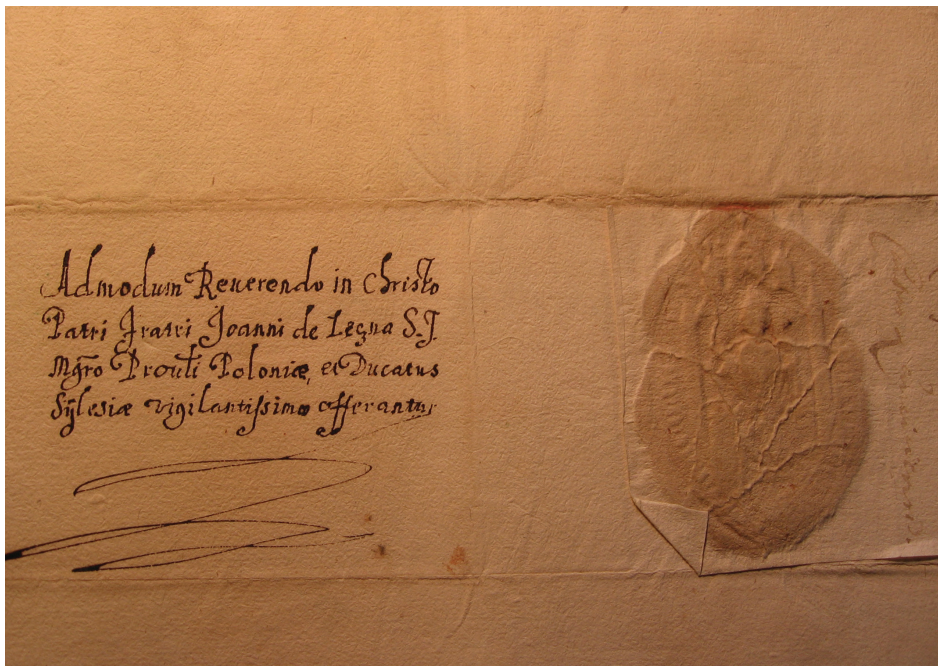 Admodum Reuerendo in Christo
Patri Fratri Joanni de Legna S.J.
Mgro Prouli Poloniæ, et Ducatus
Sÿlesiæ vigilantissimo offerantur